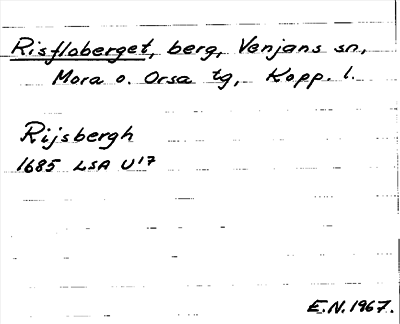 Risfloberget, berg, Venjans sn,
Mora o. Orsa tg, Kopp. l.
Rijsbergh
1685 LSA U¹7
E.N. 1967.